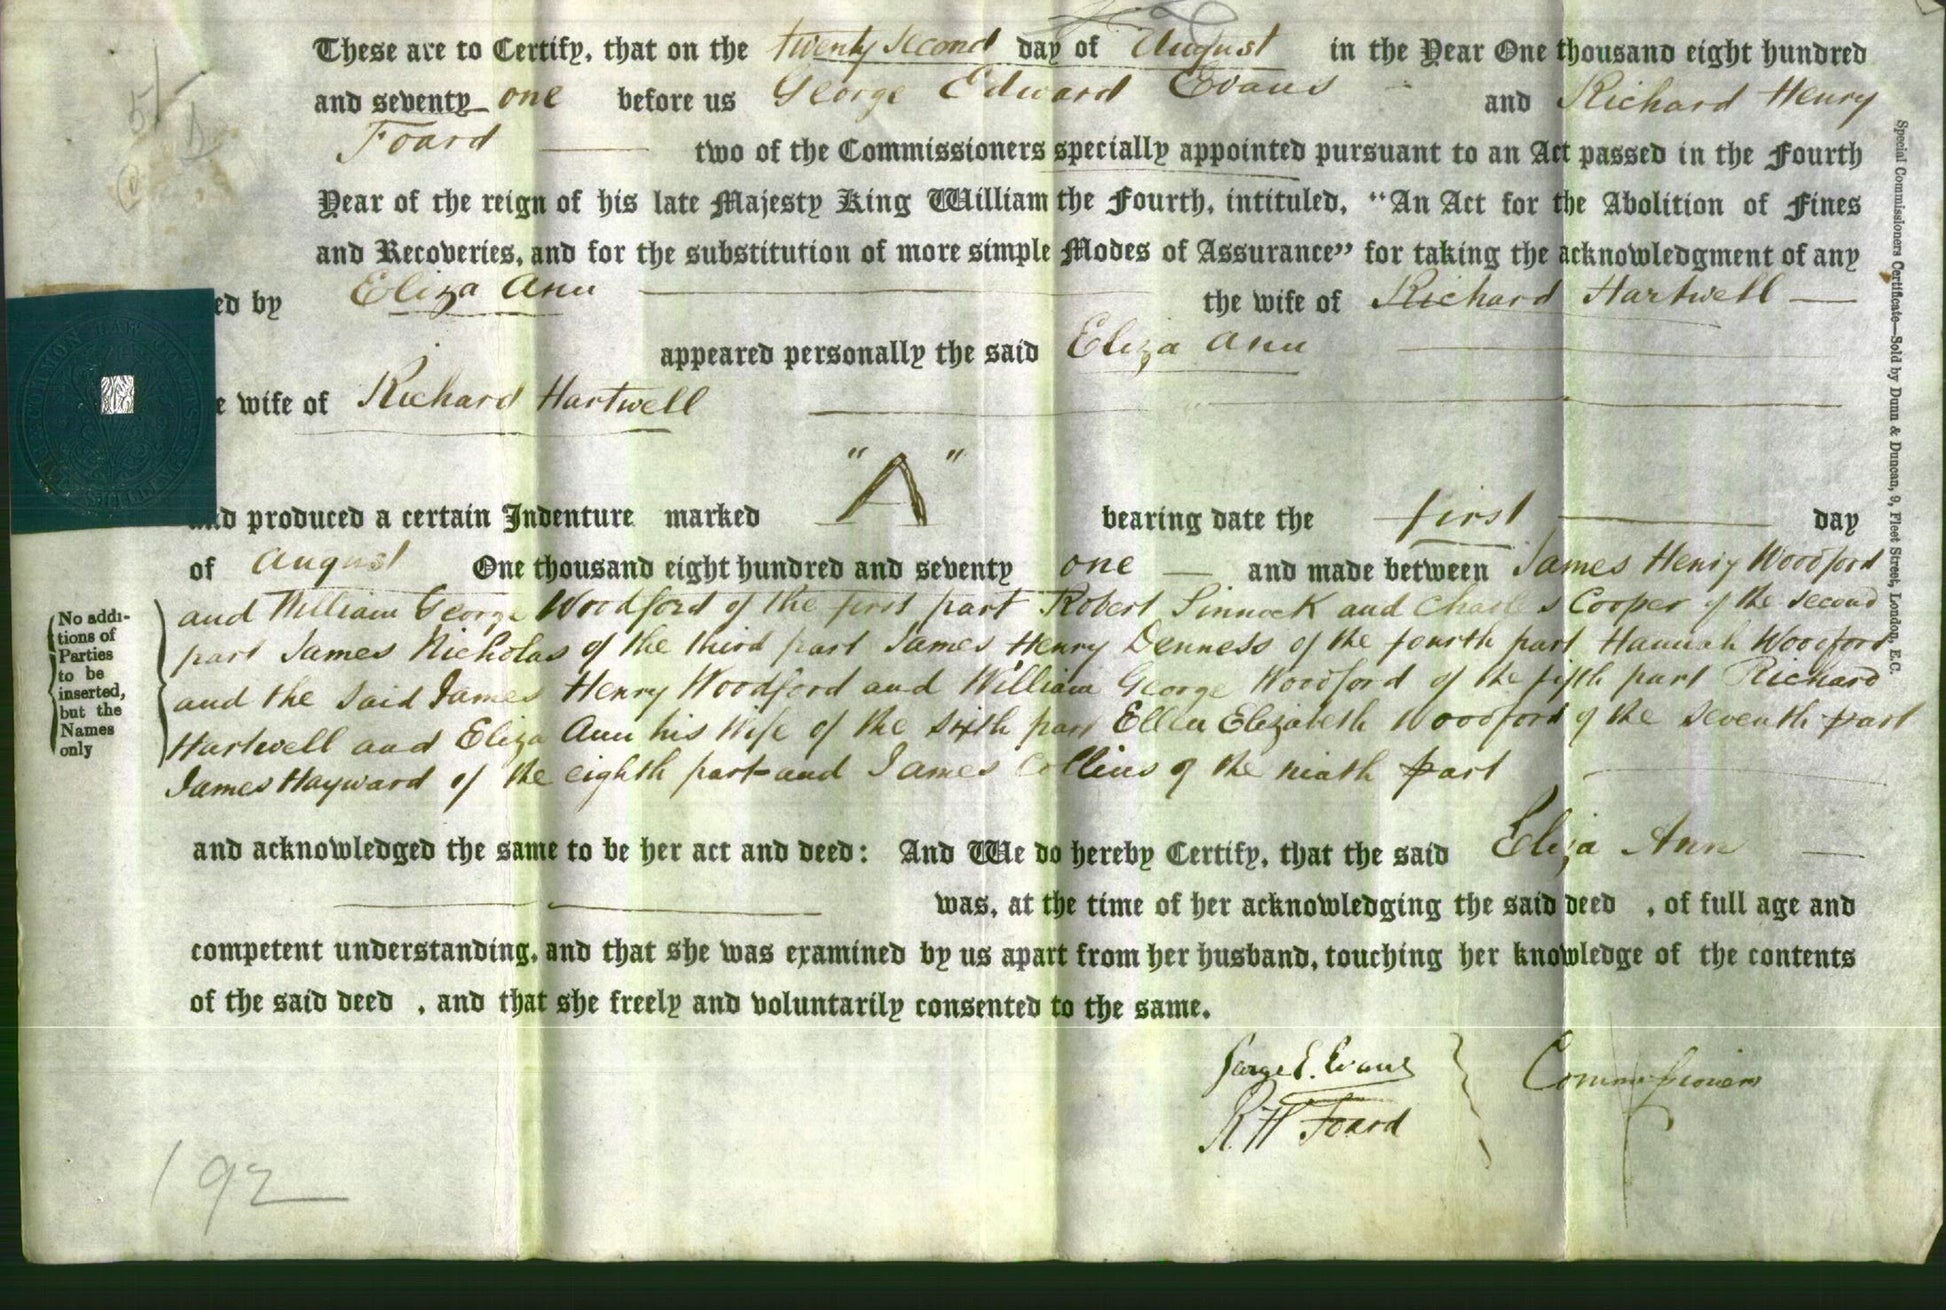 These are to Certify, that on the twenty second day of August in the Year One thousand eight hundred
and seventy one before us George Edward Evans and Richard Henry
Foard two of the Commissioners specially appointed pursuant to an Act passed in the Fourth
Year of the reign of his late Majesty King William the Fourth, intituled, "An Act for the Abolition of Fines
and Recoveries, and for the substitution of more simple Modes of Assurance" for taking the acknowledgment of any
ed by Eliza Ann the wife of Richard Hartwell
appeared personally the said Eliza Ann
e wife of Richard Hartwell
and produced a certain Indenture marked "A" bearing date the first day
of August One thousand eight hundred and seventy one and made between James Henry Woodford
and William George Woodford of the first part Robert Sinnock and Charles Cooper of the second
part James Nicholas of the third part James Henry Denness of the fourth part Hannah Woodford
and the said James Henry Woodford and William George Woodford of the fifth part Richard
Hartwell and Eliza Ann his wife of the sixth part Ellen Elizabeth Woodford of the seventh part
James Hayward of the eighth part and James Collins of the ninth part
No addi-
tions of
Parties
to be
inserted,
but the
Names
only
and acknowledged the same to be her act and deed: And We do hereby Certify, that the said Eliza Ann
was, at the time of her acknowledging the said deed , of full age and
competent understanding, and that she was examined by us apart from her husband, touching her knowledge of the contents
of the said deed , and that she freely and voluntarily consented to the same.
George E. Evans
R H Foard
Commissioners
192
Special Commissioners Certificate—Sold by Dunn & Duncan, 9, Fleet Street, London, E.C.